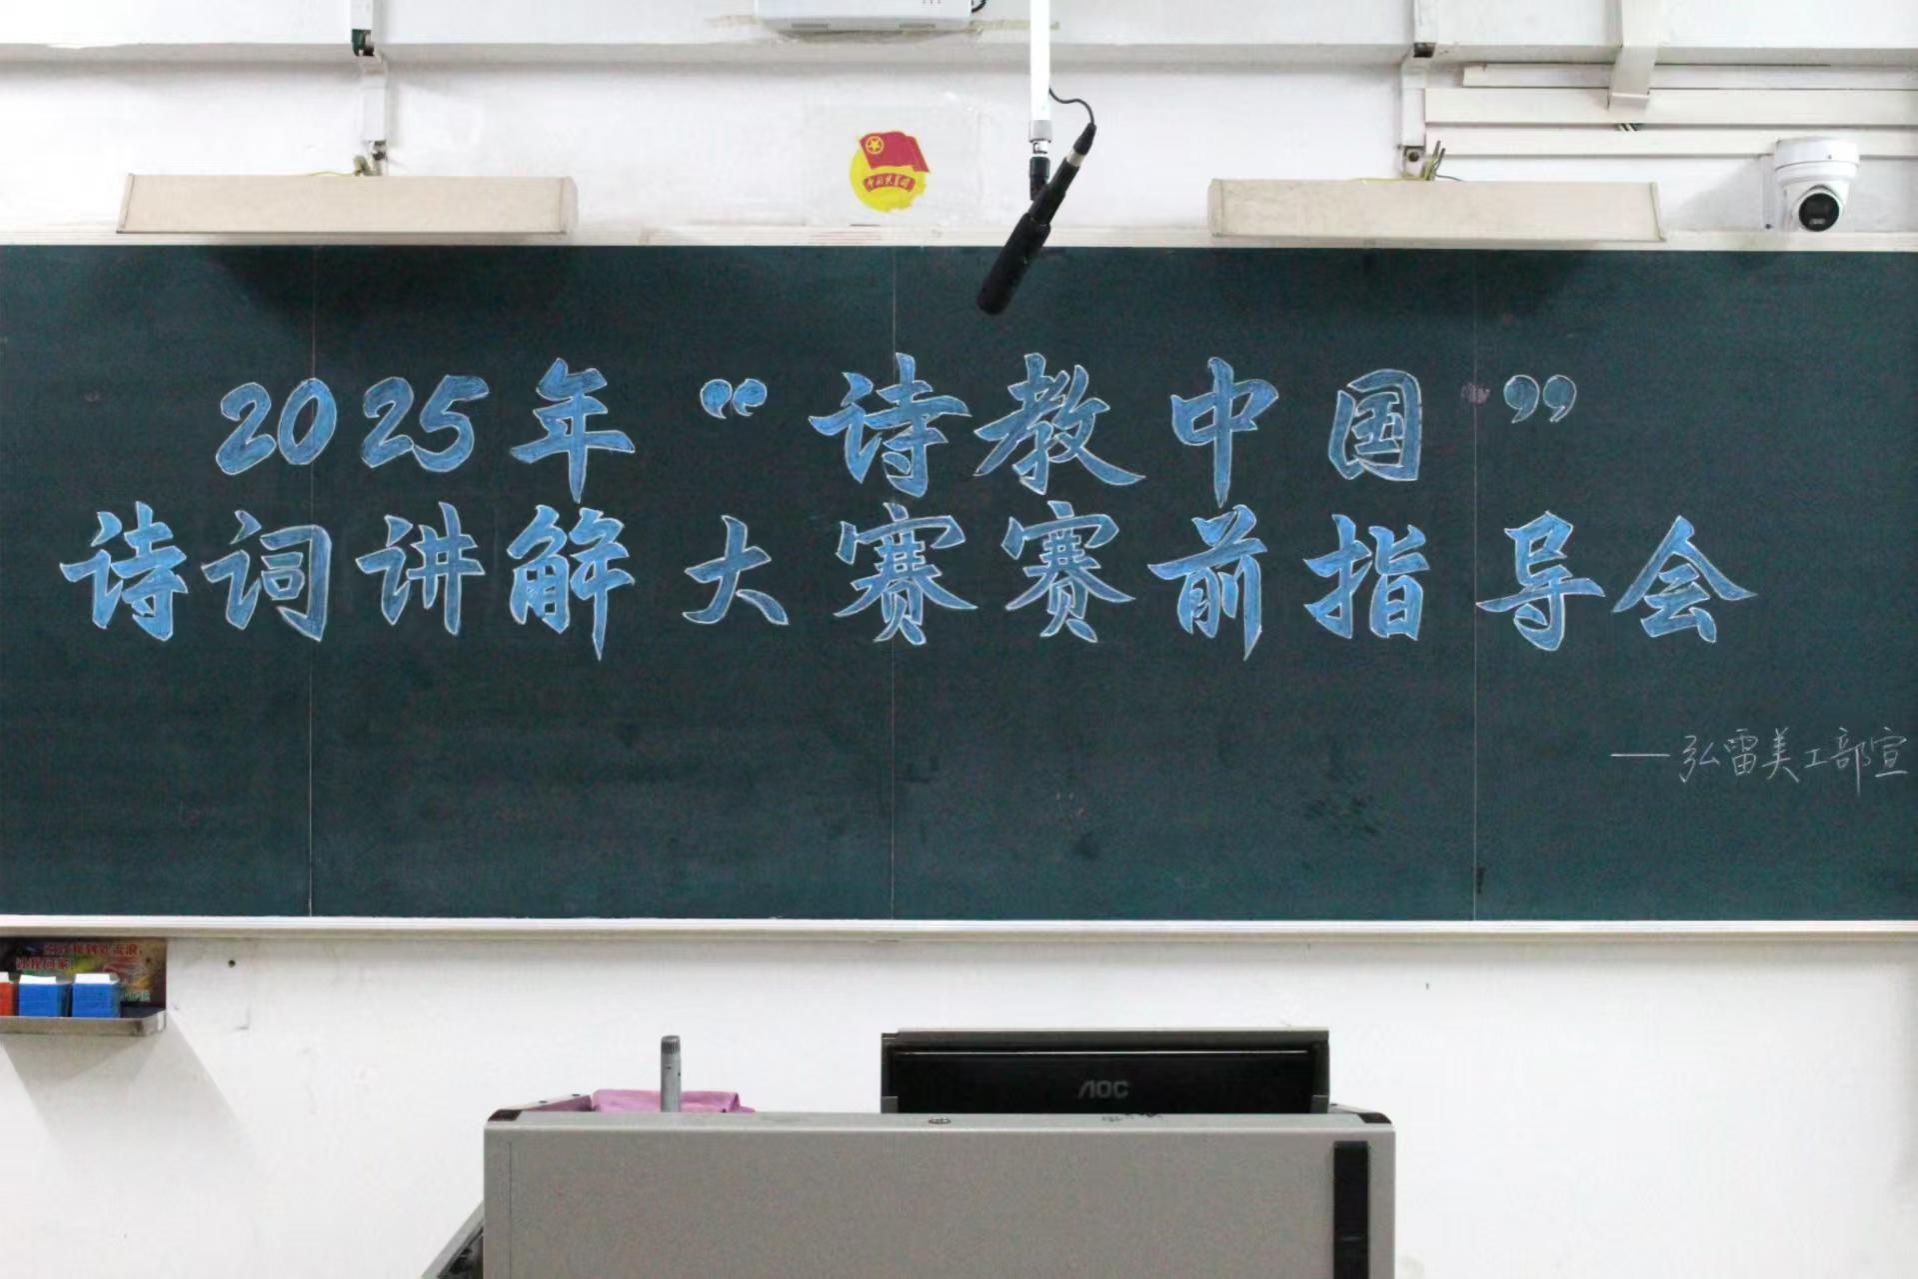 2025年“诗教中国”
诗词讲解大赛赛前指导会
—弘雷美工部宣
AOC